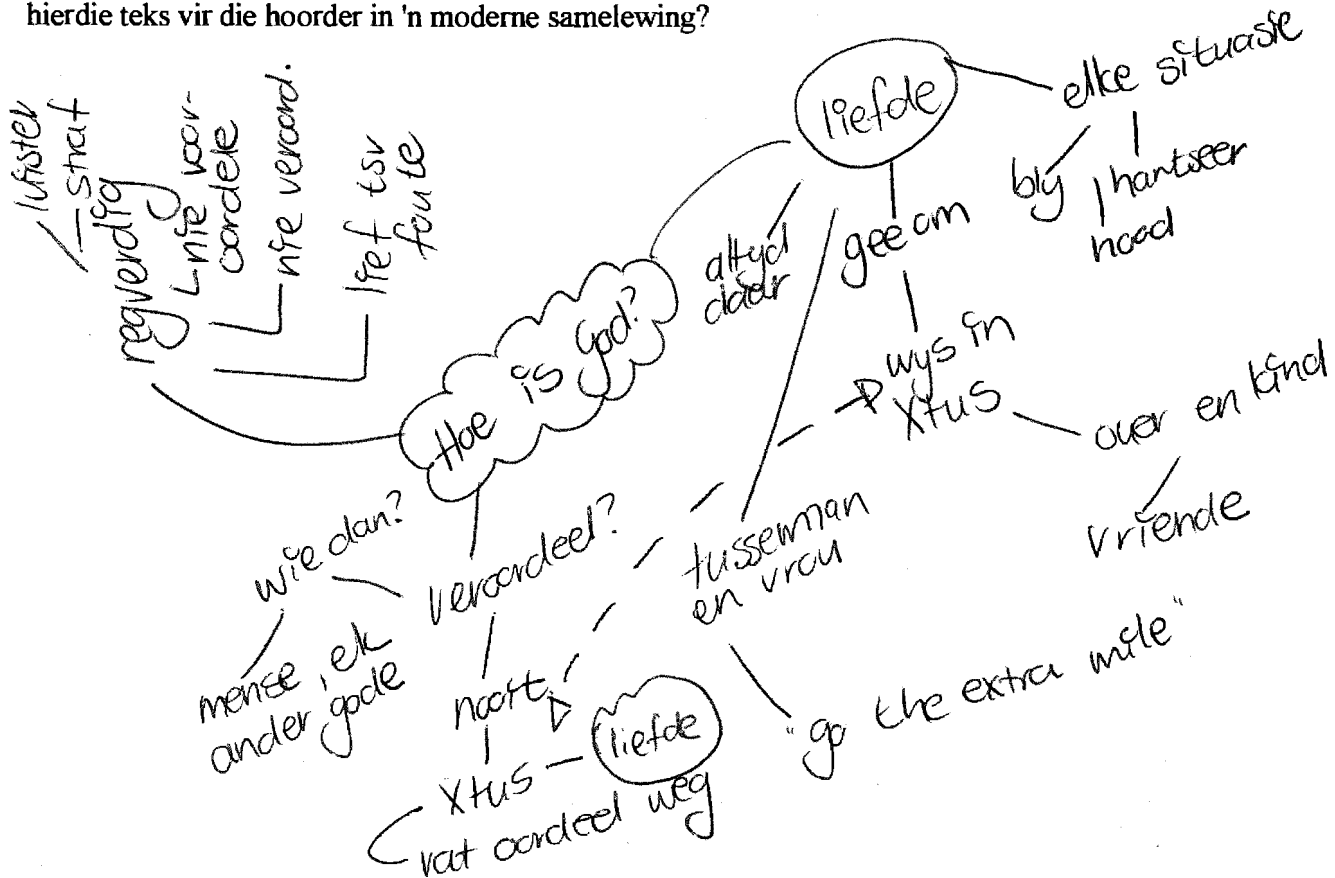 hierdie teks vir die hoorder in 'n moderne samelewing?
luister
straf
regverdig
nie voor-
oordele
nie veroord.
lief tsv
foute
liefde
elke situasie
bly
hartseer
nood
gee om
altyd
daar
Hoe is God?
wys in
Xtus
ouer en kind
vriende
tussen man
en vrou
"go the extra mile"
wie dan?
veroordeel?
mense, ek
ander gode
nooit
liefde
Xtus
vat oordeel weg